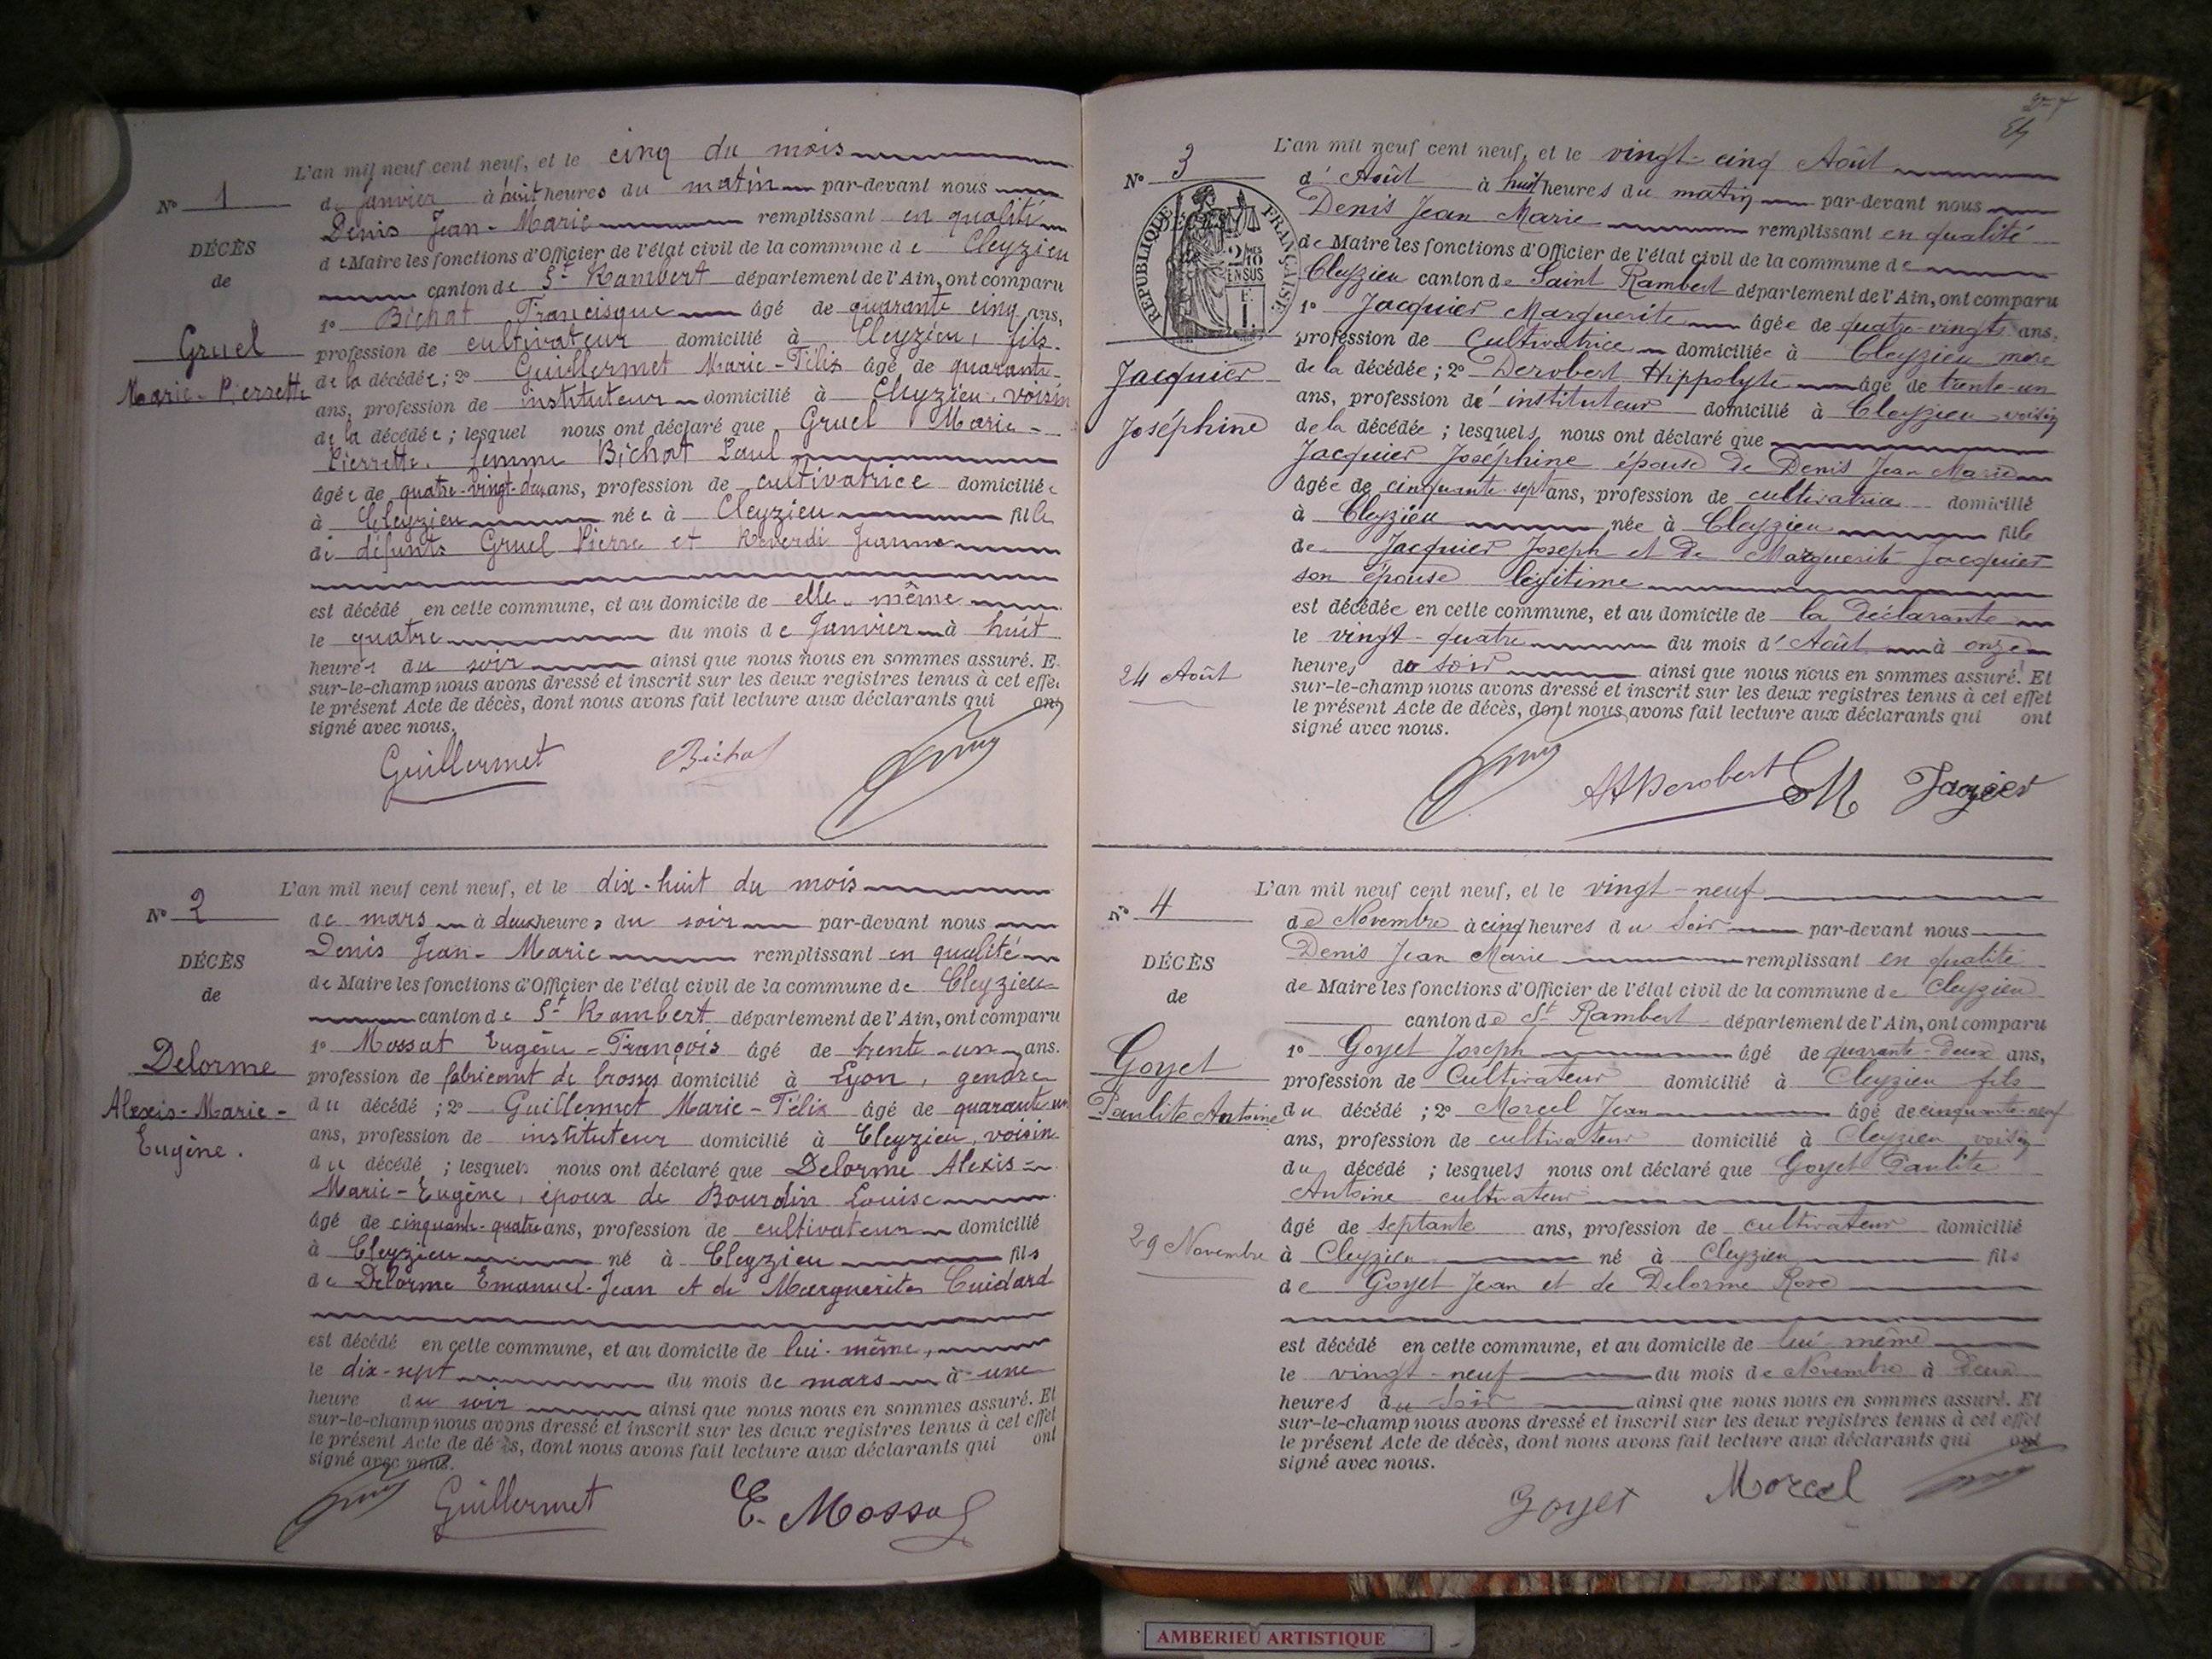 L'an mil neuf cent neuf, et le cinq du mois
N° 1
de Janvier à huit heures du matin par-devant nous
Denis Jean-Marie remplissant en qualité
DÉCÈS
de Maire les fonctions d'Officier de l'état civil de la commune de Cleyzieu
de
canton de St Rambert département de l'Ain, ont comparu
1° Bichat Francisque âgé de quarante cinq ans,
Gruel
profession de cultivateur domicilié à Cleyzieu, fils
Marie-Pierrette
de la décédée; 2° Guillermet Marie-Félix âgé de quarante-
ans, profession de instituteur domicilié à Cleyzieu, voisin
de la décédée; lesquel nous ont déclaré que Gruel Marie-
Pierrette, femme Bichat Paul
âgée de quatre-vingt-deux ans, profession de cultivatrice domiciliée
à Cleyzieu née à Cleyzieu fille
de défunts Gruel Pierre et Reverdi Jeanne
est décédé en cette commune, et au domicile de elle-même
le quatre du mois de Janvier à huit
heures du soir ainsi que nous nous en sommes assuré. E
sur-le-champ nous avons dressé et inscrit sur les deux registres tenus à cet effet
le présent Acte de décès, dont nous avons fait lecture aux déclarants qui ont
signé avec nous.
Guillermet Bichat
L'an mil neuf cent neuf, et le dix-huit du mois
N° 2
de mars à deux heures du soir par-devant nous
Denis Jean-Marie remplissant en qualité
DÉCÈS
de Maire les fonctions d'Officier de l'état civil de la commune de Cleyzieu
de
canton de St Rambert département de l'Ain, ont comparu
1° Mossat Eugène-François âgé de trente-un ans.
Delorme
profession de fabricant de brosses domicilié à Lyon, gendre
Alexis-Marie-
du décédé; 2° Guillermet Marie-Félix âgé de quarante un
Eugène.
ans, profession de instituteur domicilié à Cleyzieu, voisin
du décédé; lesquels nous ont déclaré que Delorme Alexis-
Marie-Eugène, époux de Bourdin Louise
âgé de cinquante-quatre ans, profession de cultivateur domicilié
à Cleyzieu né à Cleyzieu fils
de Delorme Emanuel-Jean et de Marguerite Cuidard
est décédé en cette commune, et au domicile de lui-même,
le dix-sept du mois de mars à une
heure du soir ainsi que nous nous en sommes assuré. Et
sur-le-champ nous avons dressé et inscrit sur les deux registres tenus à cet effet
le présent Acte de décès, dont nous avons fait lecture aux déclarants qui ont
signé avec nous.
Guillermet E. Mossat
L'an mil neuf cent neuf, et le vingt-cinq Août
N° 3
d'Août à huit heures du matin par-devant nous
Denis Jean Marie remplissant en qualité
RÉPUBLIQUE FRANÇAISE
2/10 EN SUS
de Maire les fonctions d'Officier de l'état civil de la commune de
Cleyzieu canton de Saint Rambert département de l'Ain, ont comparu
1° Jacquier Marguerite âgée de quatre-vingts ans,
profession de Cultivatrice domiciliée à Cleyzieu mère
Jacquier
de la décédée; 2° Derobert Hippolyte âgé de trente-un
ans, profession d'instituteur domicilié à Cleyzieu voisin
Joséphine
de la décédée; lesquels nous ont déclaré que
Jacquier Joséphine épouse de Denis Jean Marie
âgée de cinquante-sept ans, profession de cultivatrice domicilié
à Cleyzieu née à Cleyzieu fille
de Jacquier Joseph et de Marguerite Jacquier
son épouse légitime
est décédée en cette commune, et au domicile de la déclarante
le vingt-quatre du mois d'Août à onze
24 Août
heures du soir ainsi que nous nous en sommes assuré. Et
sur-le-champ nous avons dressé et inscrit sur les deux registres tenus à cet effet
le présent Acte de décès, dont nous avons fait lecture aux déclarants qui ont
signé avec nous.
HDerobert M Jaqier
L'an mil neuf cent neuf, et le vingt-neuf
N° 4
de Novembre à cinq heures du Soir par-devant nous
Denis Jean Marie remplissant en qualité
DÉCÈS
de Maire les fonctions d'Officier de l'état civil de la commune de Cleyzieu
de
canton de St Rambert département de l'Ain, ont comparu
1° Goyet Joseph âgé de quarante-deux ans,
Goyet
profession de Cultivateur domicilié à Cleyzieu fils
Paulite Antoine
du décédé; 2° Morcel Jean âgé de cinquante-neuf
ans, profession de cultivateur domicilié à Cleyzieu voisin
du décédé; lesquels nous ont déclaré que Goyet Paulite
Antoine cultivateur
âgé de septante ans, profession de cultivateur domicilié
29 Novembre
à Cleyzieu né à Cleyzieu fils
de Goyet Jean et de Delorme Rose
est décédé en cette commune, et au domicile de lui-même
le vingt-neuf du mois de Novembre à deux
heures du Soir ainsi que nous nous en sommes assuré. Et
sur-le-champ nous avons dressé et inscrit sur les deux registres tenus à cet effet
le présent Acte de décès, dont nous avons fait lecture aux déclarants qui ont
signé avec nous.
Goyet Morcel
AMBERIEU ARTISTIQUE